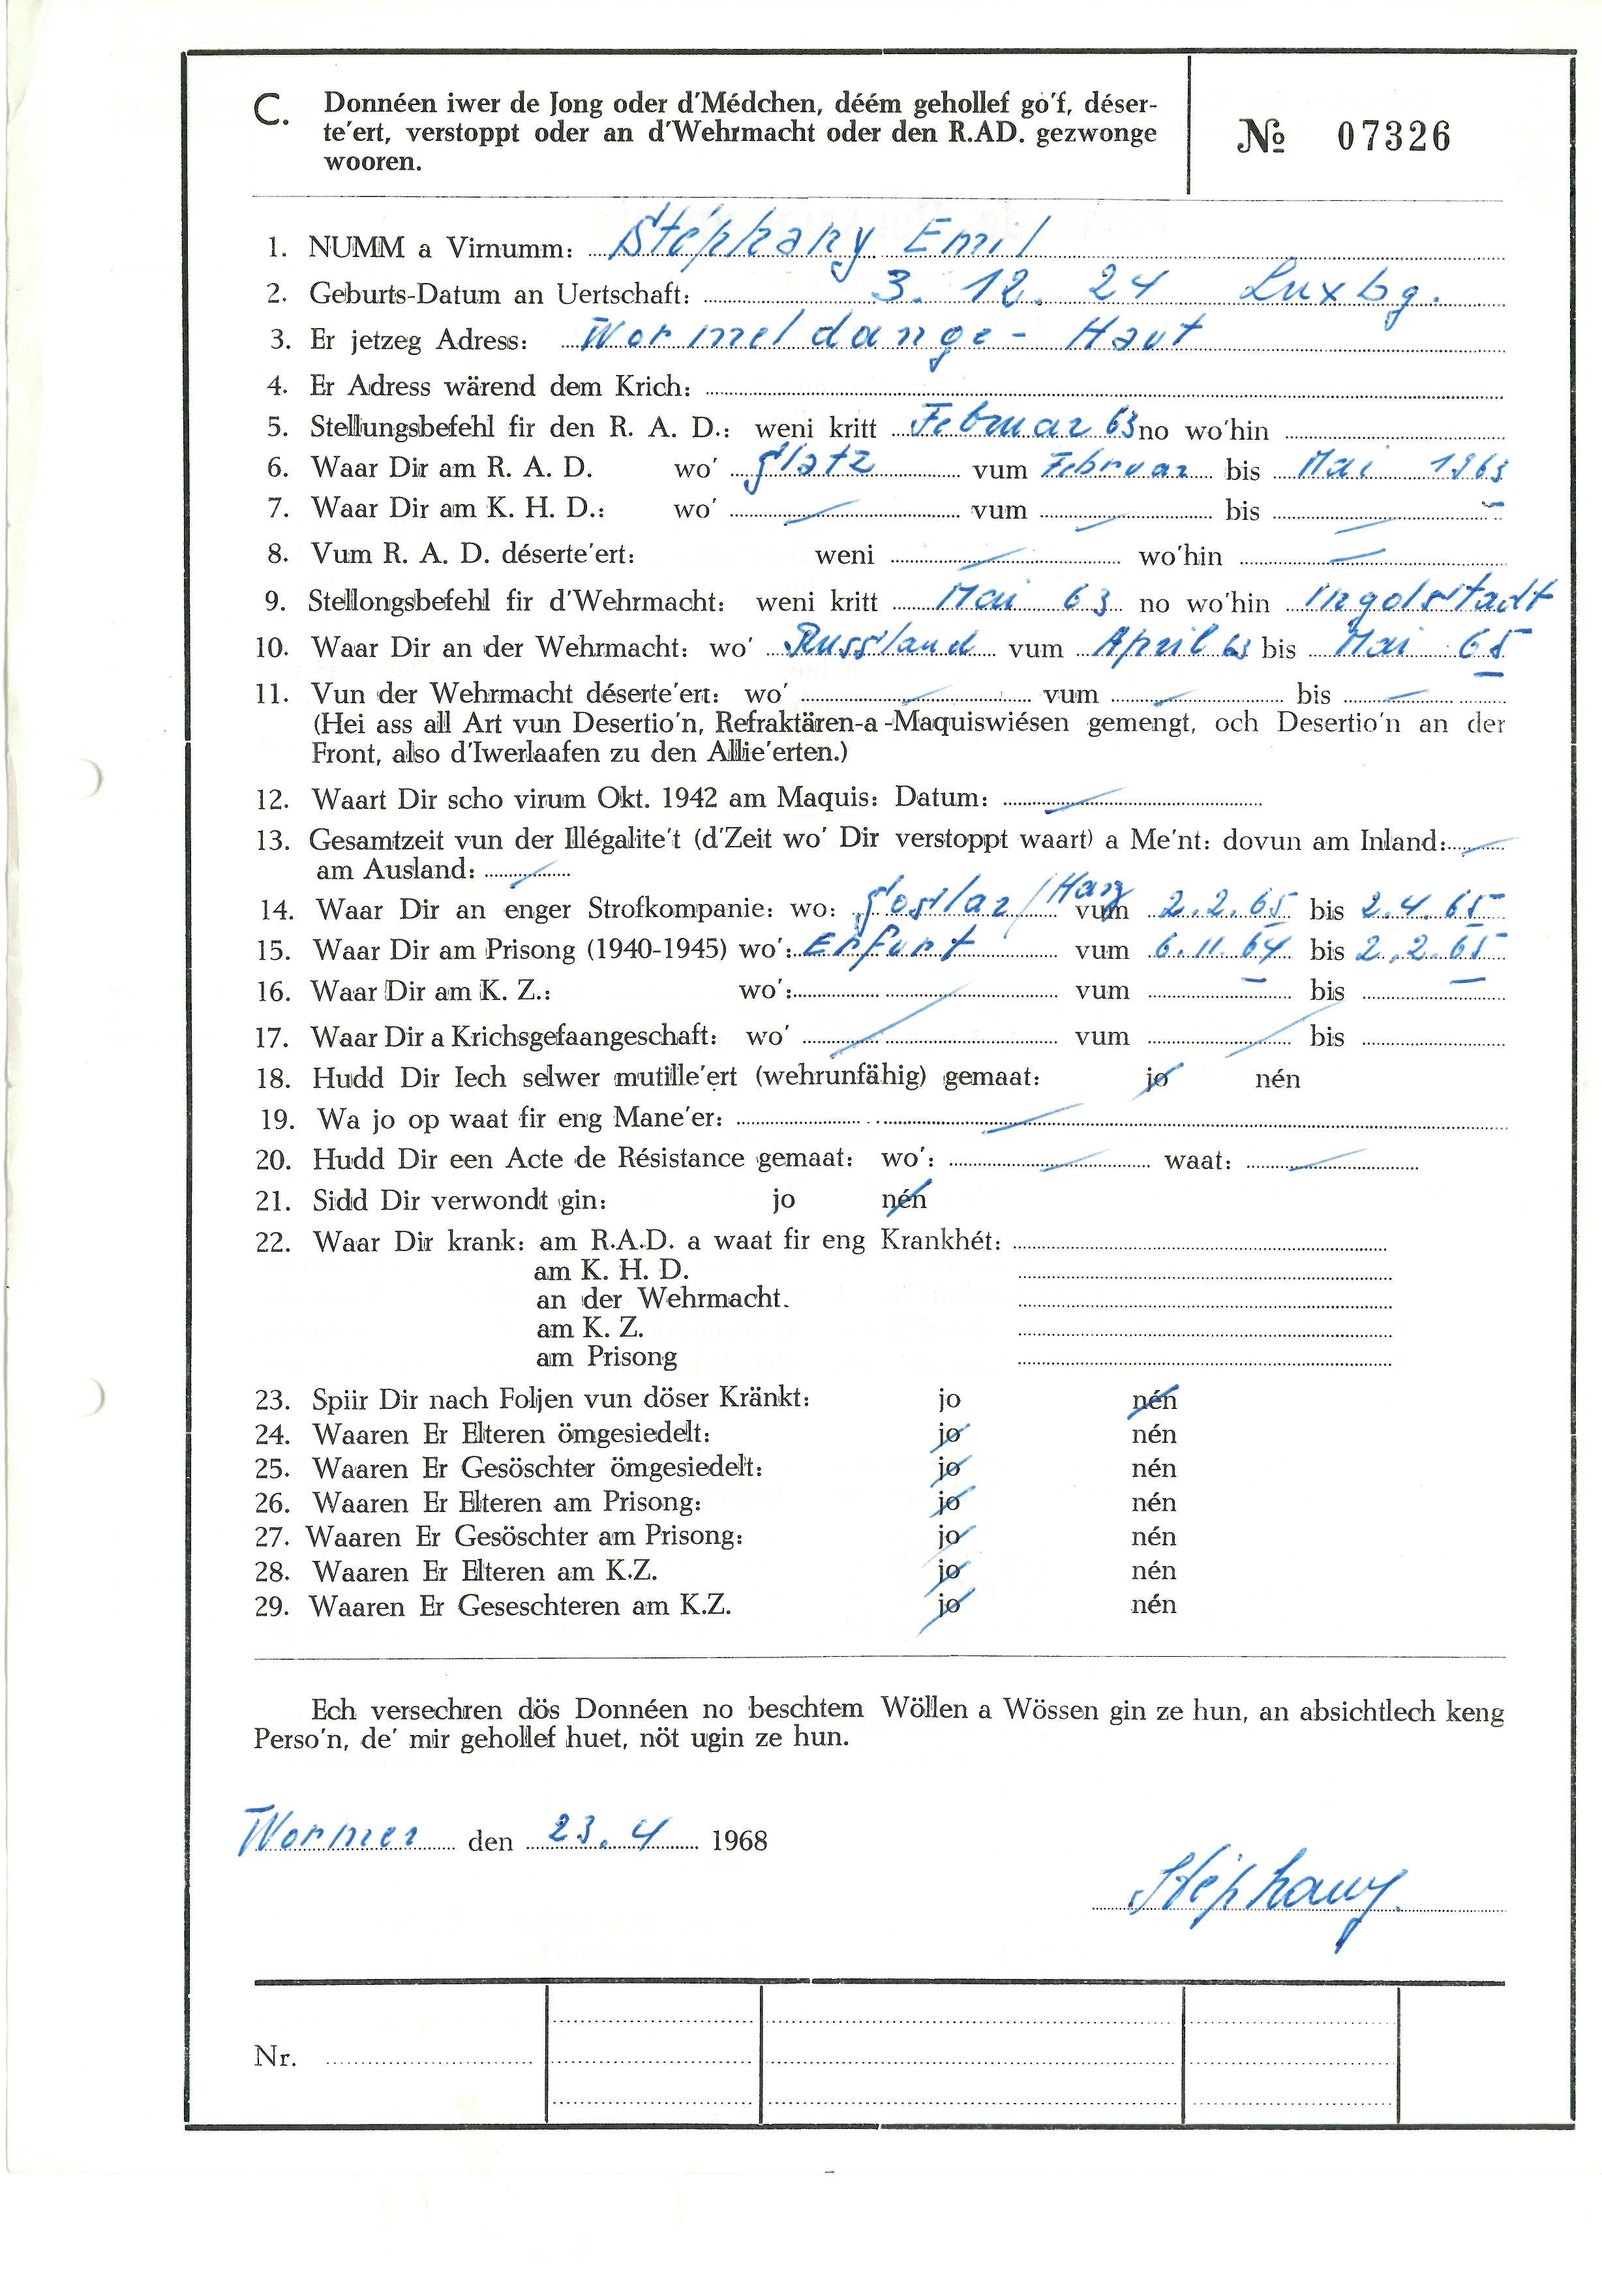 C. Donnéen iwer de Jong oder d'Médchen, déém gehollef go'f, déser-
te'ert, verstoppt oder an d'Wehrmacht oder den R.AD. gezwonge
wooren.
№ 07326
1. NUMM a Virnumm: Stéphany Emil
2. Geburts-Datum an Uertschaft: 3. 12. 24 Luxbg.
3. Er jetzeg Adress: Wormeldange - Haut
4. Er Adress wärend dem Krich:
5. Stellungsbefehl fir den R. A. D.: weni kritt Februar 63 no wo'hin
6. Waar Dir am R. A. D. wo' Glatz vum Februar bis Mai 1963
7. Waar Dir am K. H. D.: wo' vum bis
8. Vum R. A. D. déserte'ert: weni wo'hin
9. Stellongsbefehl fir d'Wehrmacht: weni kritt Mai 63 no wo'hin Ingolstadt
10. Waar Dir an der Wehrmacht: wo' Russland vum April 63 bis Mai 65
11. Vun der Wehrmacht déserte'ert: wo' vum bis
(Hei ass all Art vun Desertio'n, Refraktären-a-Maquiswiésen gemengt, och Desertio'n an der
Front, also d'Iwerlaafen zu den Allie'erten.)
12. Waart Dir scho virum Okt. 1942 am Maquis: Datum:
13. Gesamtzeit vun der Illégalite't (d'Zeit wo' Dir verstoppt waart) a Me'nt: dovun am Inland:
am Ausland:
14. Waar Dir an enger Strofkompanie: wo: Goslar / Harz vum 2.2.65 bis 2.4.65
15. Waar Dir am Prisong (1940-1945) wo': Erfurt vum 6.11.64 bis 2.2.65
16. Waar Dir am K. Z.: wo': vum bis
17. Waar Dir a Krichsgefaangeschaft: wo' vum bis
18. Hudd Dir Iech selwer mutille'ert (wehrunfähig) gemaat: jo nén
19. Wa jo op waat fir eng Mane'er:
20. Hudd Dir een Acte de Résistance gemaat: wo': waat:
21. Sidd Dir verwondt gin: jo nén
22. Waar Dir krank: am R.A.D. a waat fir eng Krankhét:
am K. H. D.
an der Wehrmacht.
am K. Z.
am Prisong
23. Spiir Dir nach Foljen vun döser Kränkt: jo nén
24. Waaren Er Elteren ömgesiedelt: jo nén
25. Waaren Er Gesöschter ömgesiedelt: jo nén
26. Waaren Er Elteren am Prisong: jo nén
27. Waaren Er Gesöschter am Prisong: jo nén
28. Waaren Er Elteren am K.Z. jo nén
29. Waaren Er Geseschteren am K.Z. jo nén
Ech versechren dös Donnéen no beschtem Wöllen a Wössen gin ze hun, an absichtlech keng
Perso'n, de' mir gehollef huet, nöt ugin ze hun.
Wormer den 23. 4 1968
Stéphany.
Nr.